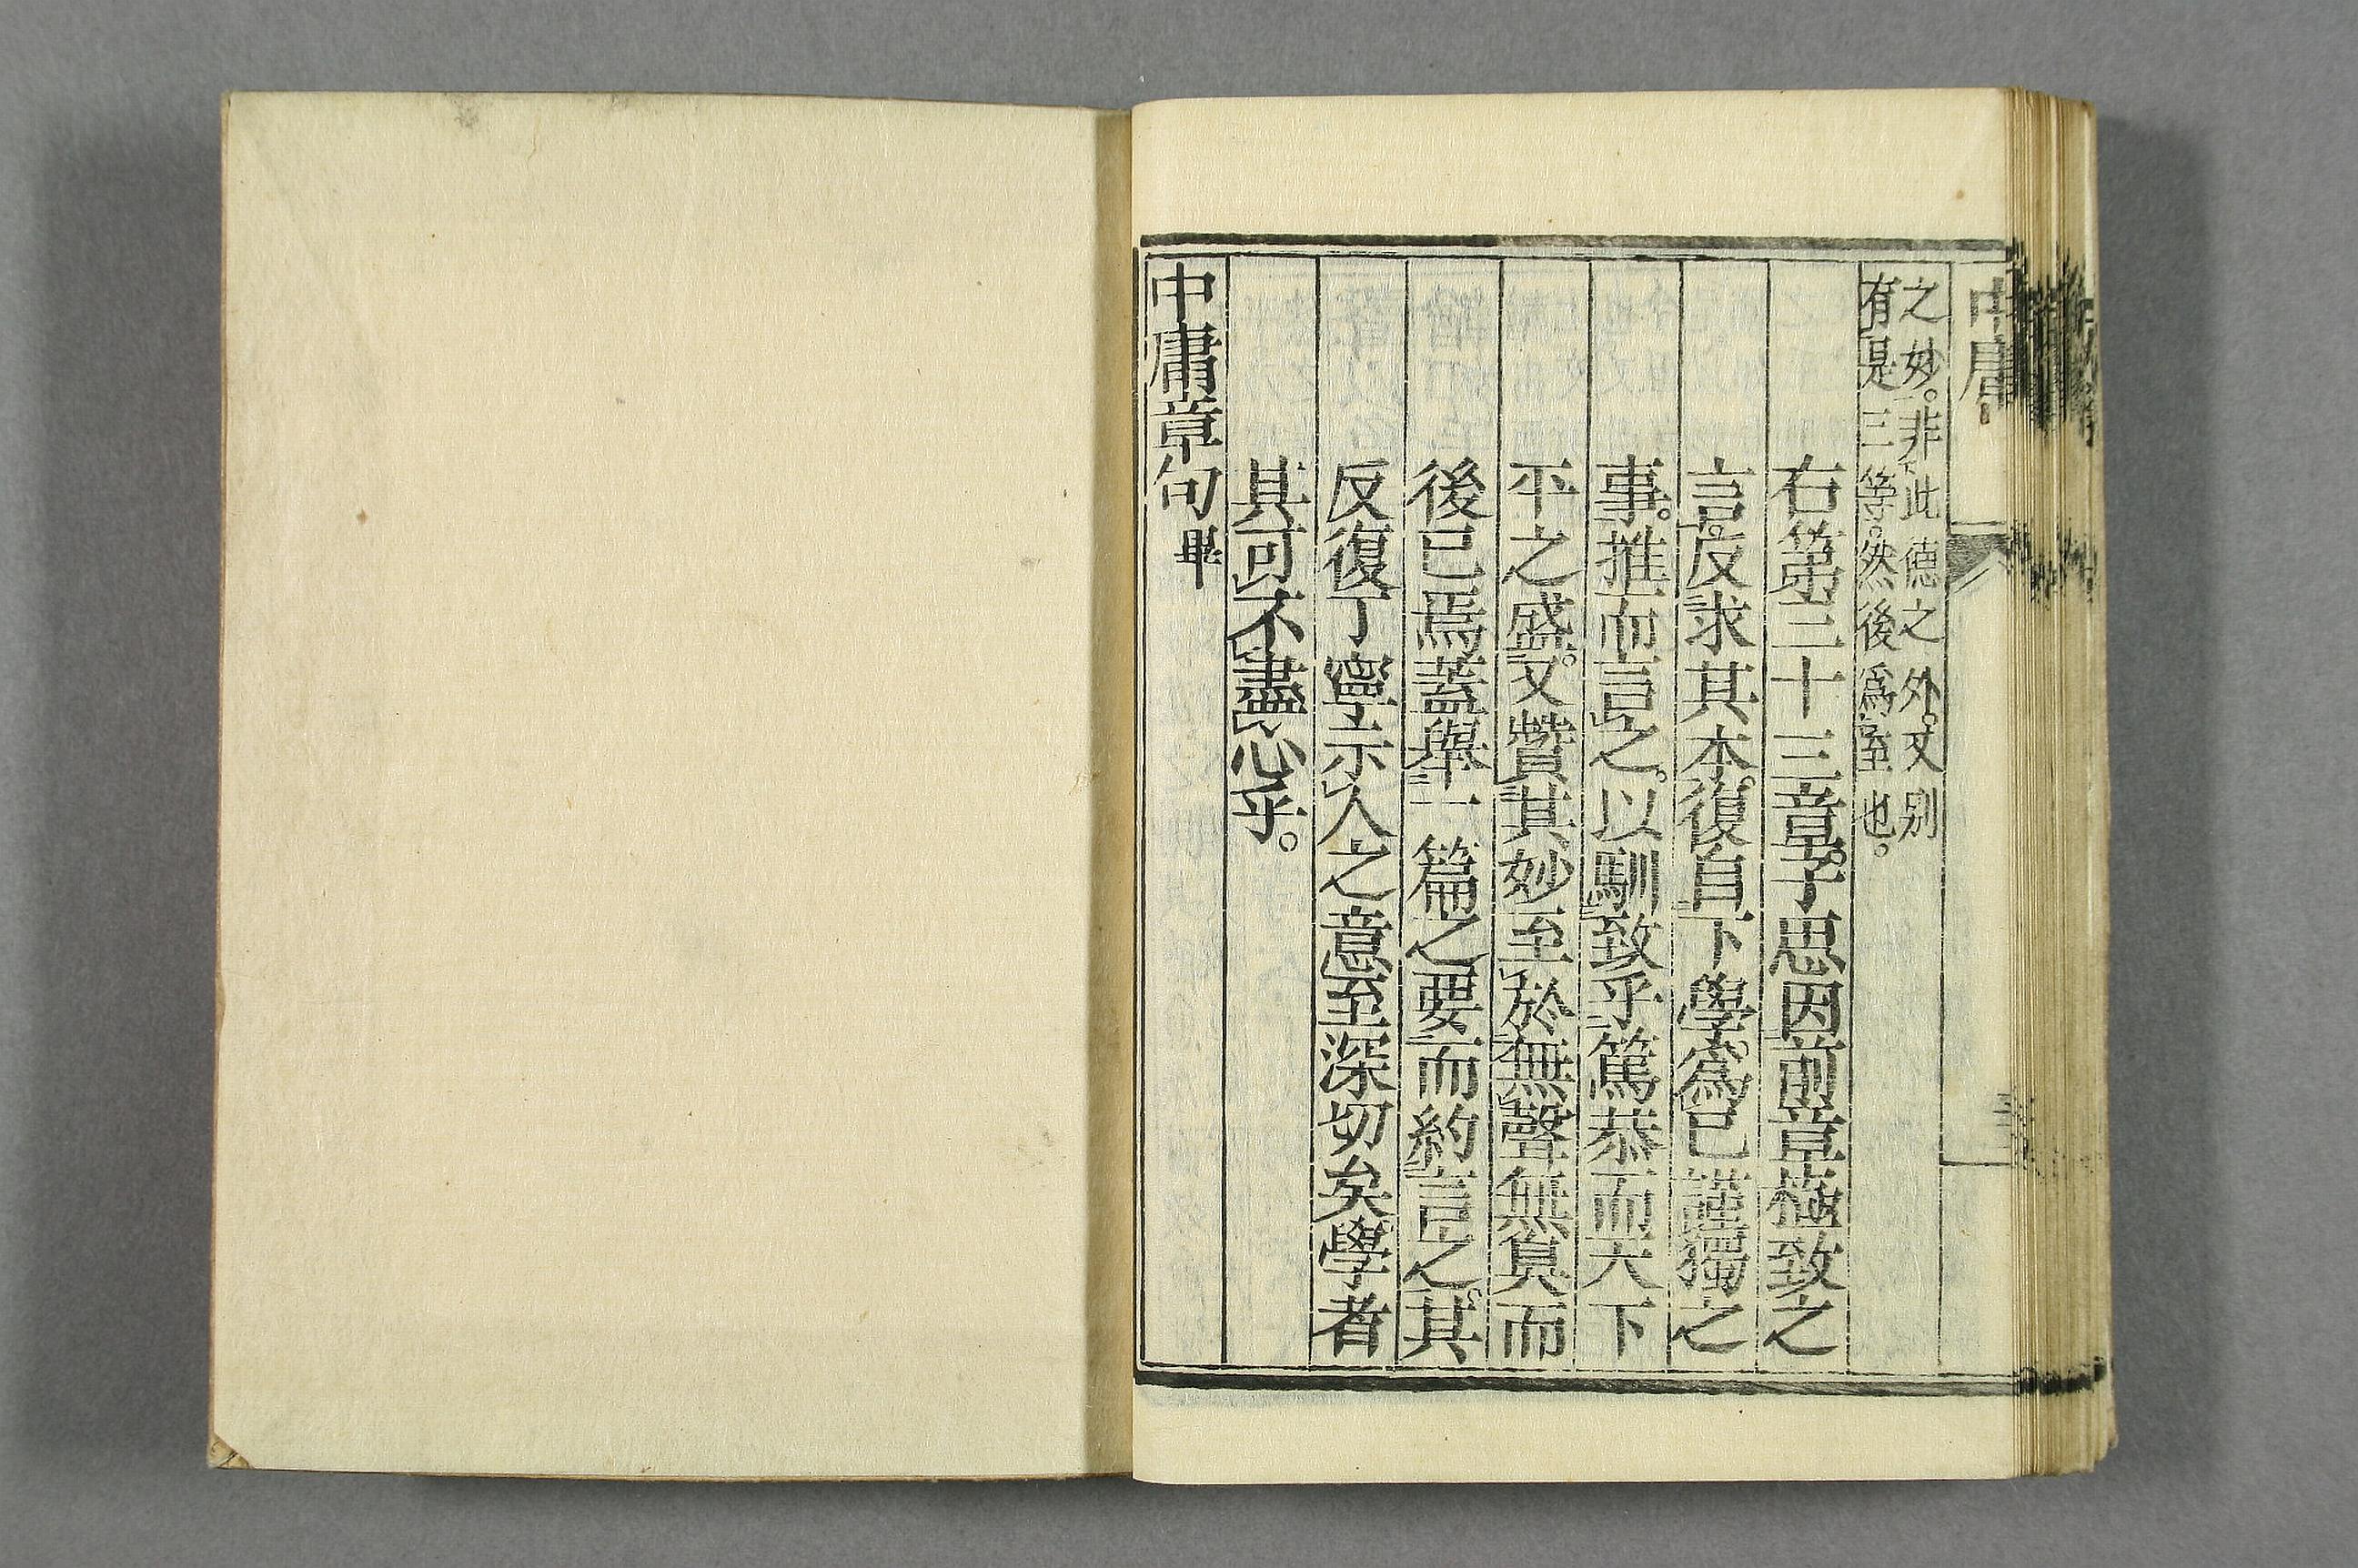 中庸
之妙。非此德之外。又别
有是三等。然後爲至也。
右第三十三章。子思因前章極致之
言。反求其本。復自下學。爲己謹獨之
事。推而言之。以馴致乎篤恭而天下
平之盛。又贊其妙至於無聲無臭而
後已焉蓋舉一篇之要而約言之。其
反復丁寧示人之意至深切矣學者
其可不盡心乎。
中庸章句畢